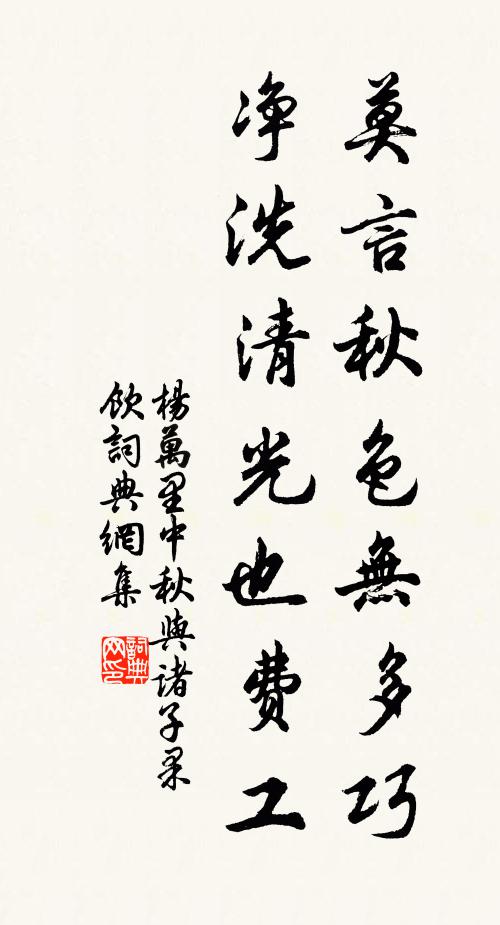 莫言秋色無多巧
净洗清光也費工
楊萬里中秋與諸子果
飲詞典網集
詞典網印